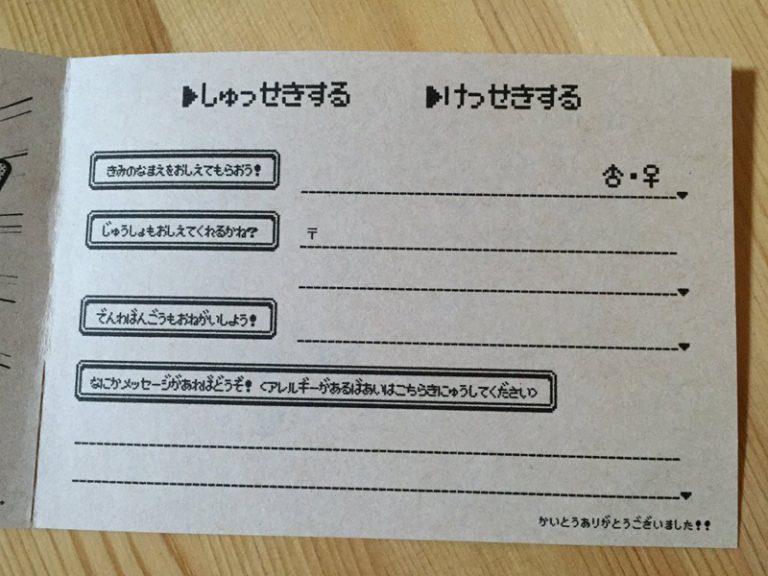 ▶しゅっせきする ▶けっせきする
きみのなまえをおしえてもらおう!
♂・♀
じゅうしょもおしえてくれるかね?
〒
でんわばんごうもおねがいしよう!
なにかメッセージがあればどうぞ! <アレルギーがあるばあいはこちらきにゅうしてください>
かいとうありがとうございました!!